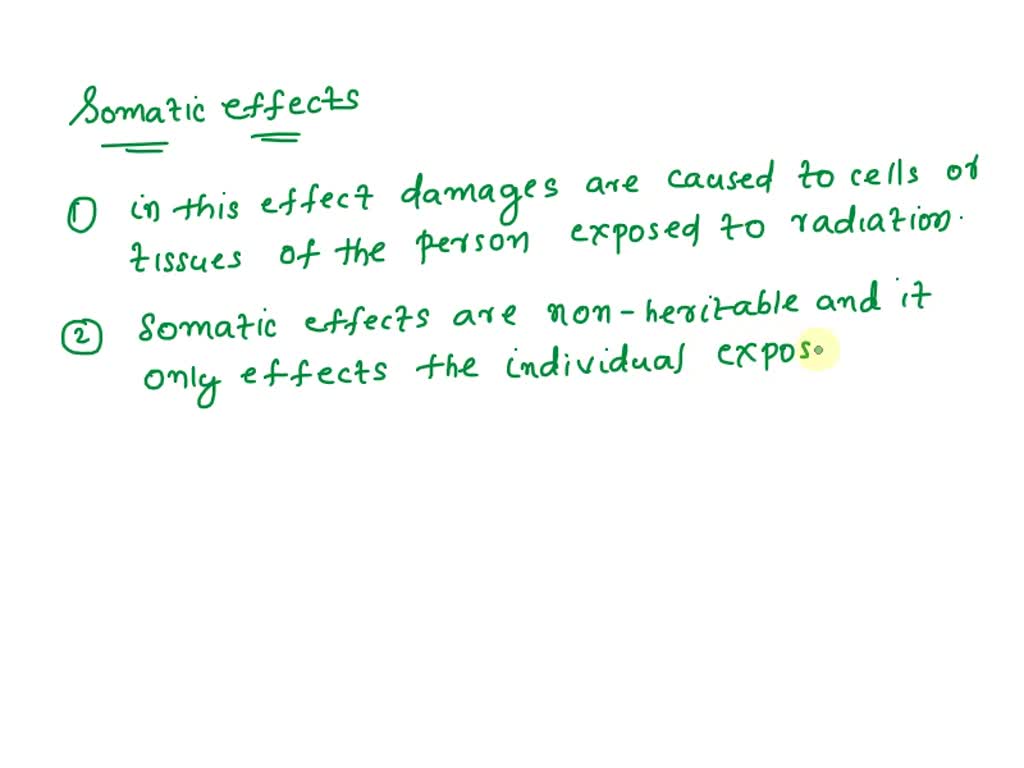 Somatic effects
① in this effect damages are caused to cells or
tissues of the person exposed to radiation.
② Somatic effects are non-heritable and it
only effects the individual expos